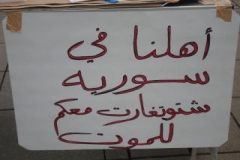 أهلنا في
سوريه
شتوتغارت معكم
للموت